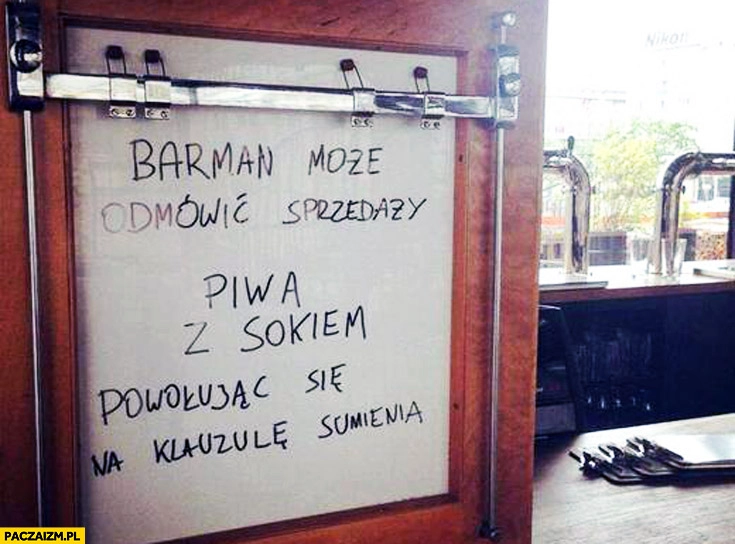 Nikon
BARMAN MOŻE
ODMÓWIĆ SPRZEDAŻY
PIWA
Z SOKIEM
POWOŁUJĄC SIĘ
NA KLAUZULĘ SUMIENIA
PACZAIZM.PL